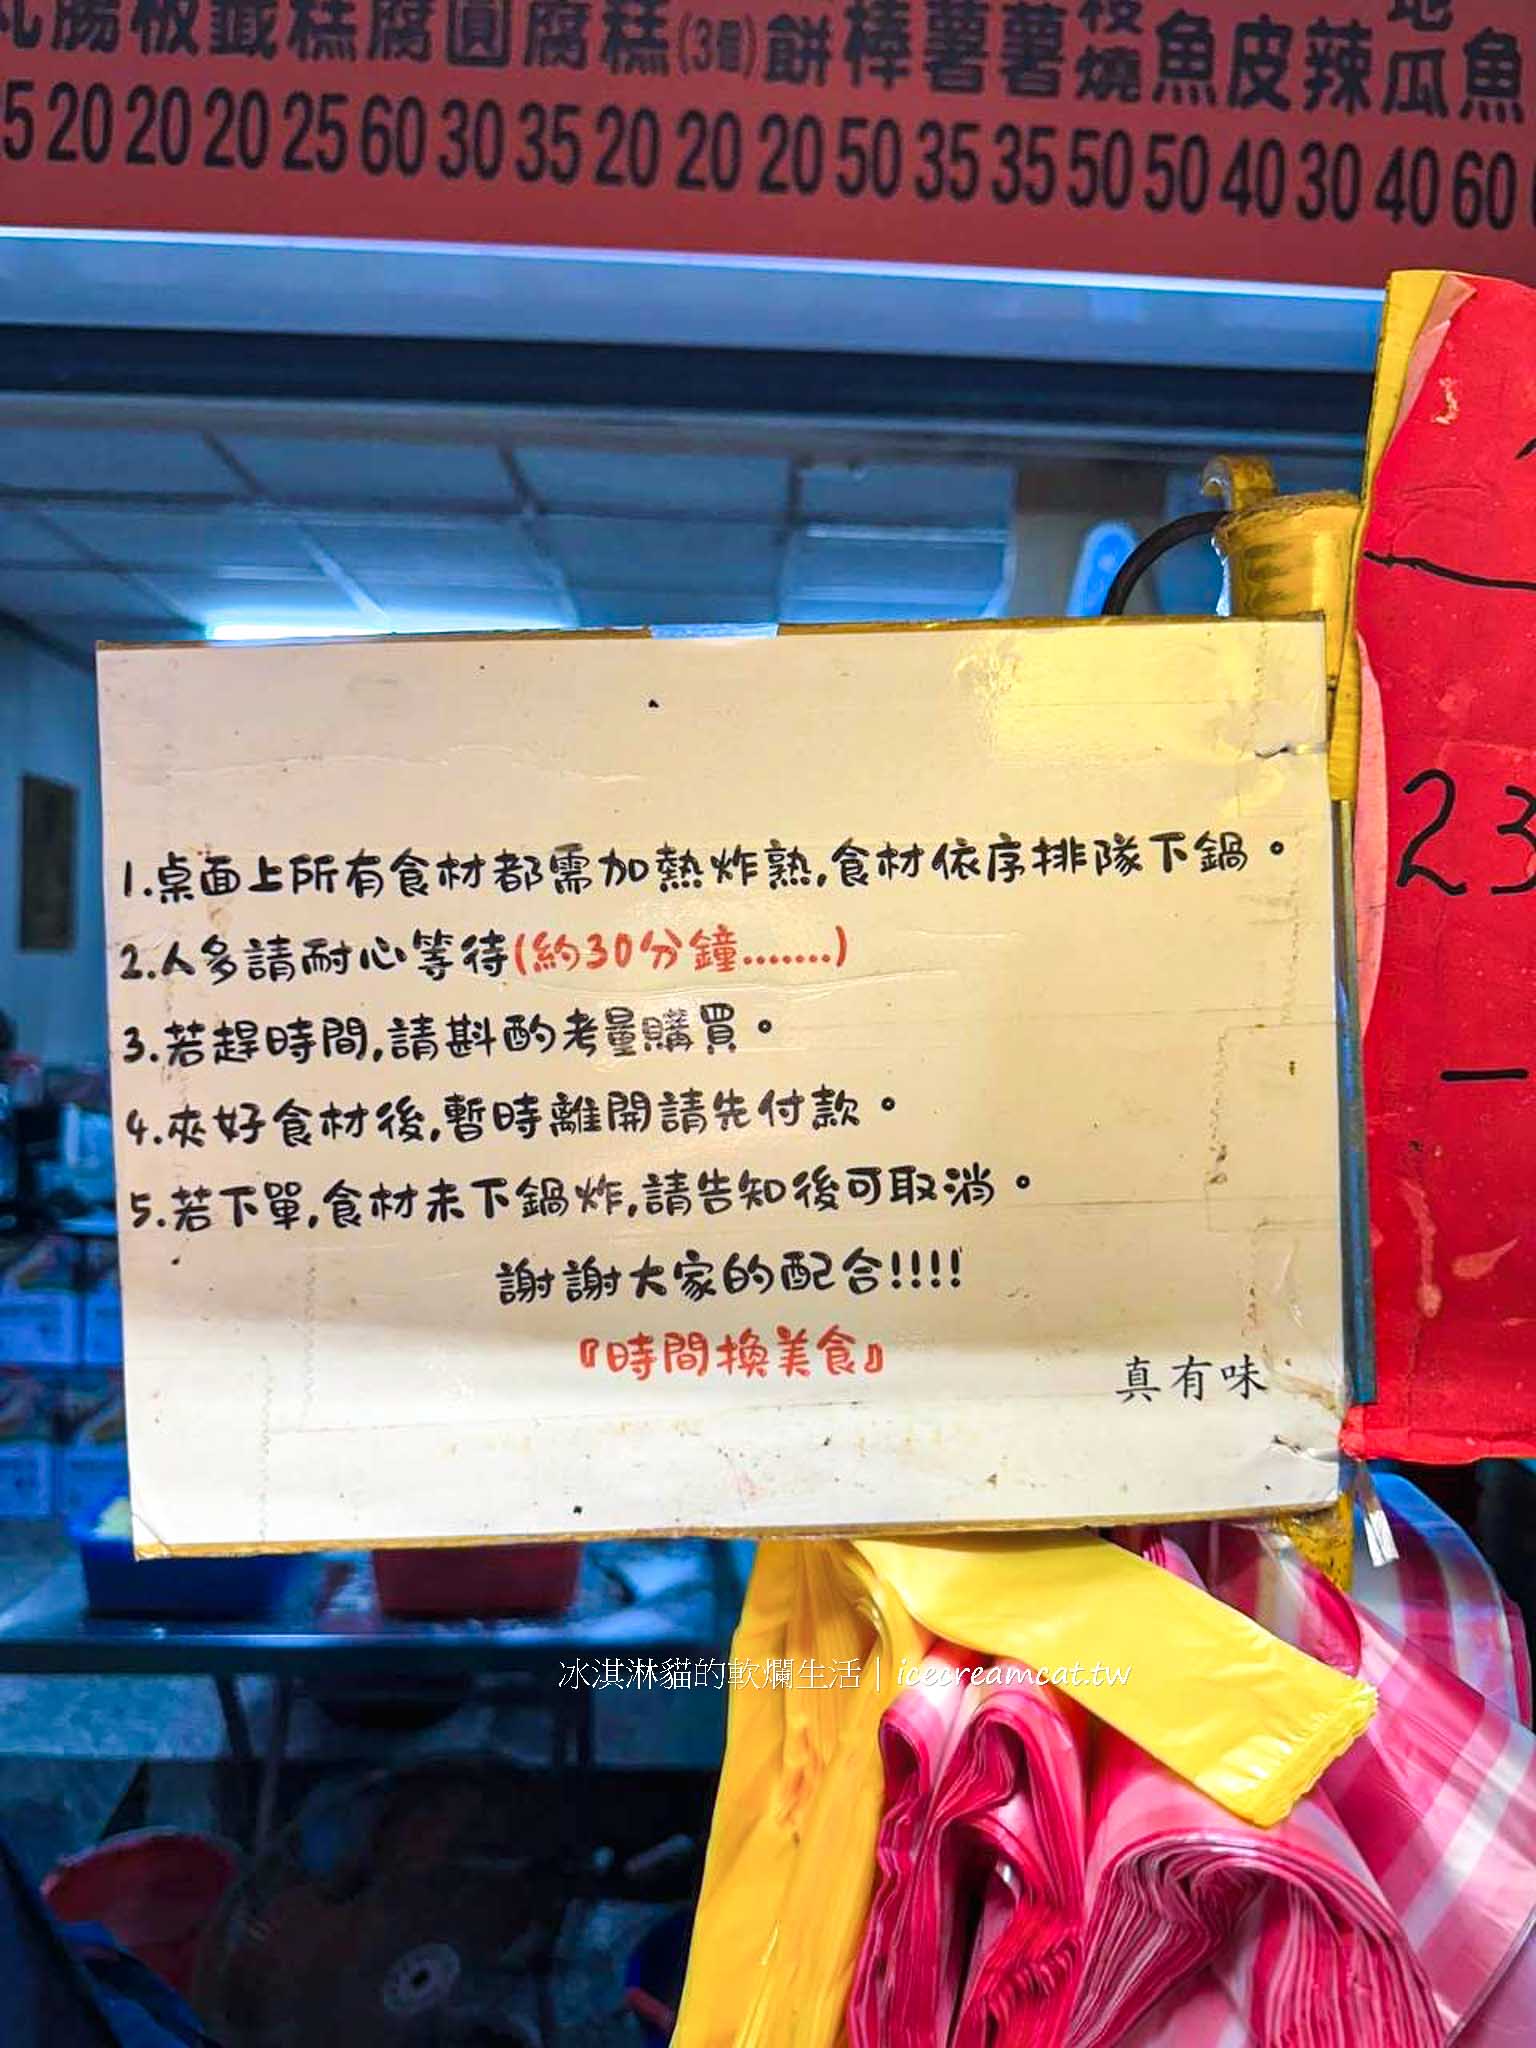 腸板籤糕腐圓腐糕(3個)餅棒薯薯燒魚皮辣瓜魚
20 20 20 25 60 30 35 20 20 20 50 35 35 50 50 40 30 40 60
1.桌面上所有食材都需加熱炸熟,食材依序排隊下鍋。
2.人多請耐心等待(約30分鐘.......)
3.若趕時間,請斟酌考量購買。
4.夾好食材後,暫時離開請先付款。
5.若下單,食材未下鍋炸,請告知後可取消。
謝謝大家的配合!!!!
『時間換美食』
真有味
23
一
冰淇淋貓的軟爛生活｜icecreamcat.tw